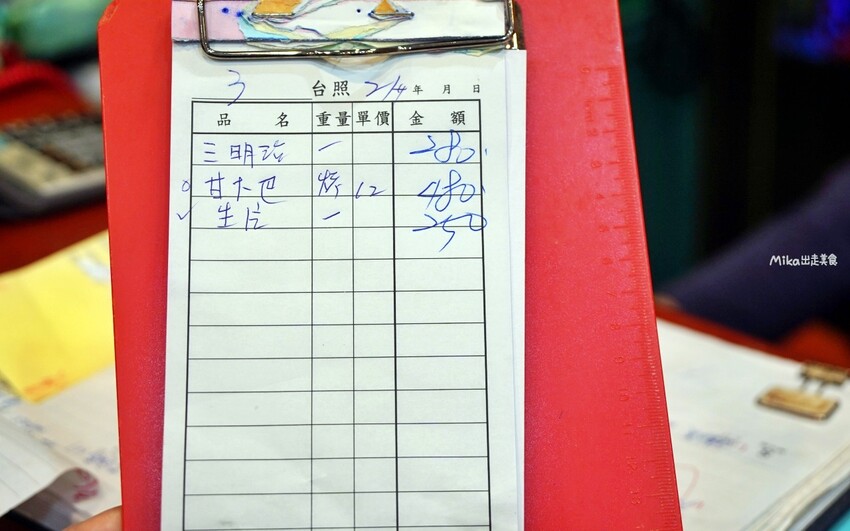 3 台照 2/4 年 月 日
品 名 重量 單價 金 額
三明治 一 280.
甘卜巴 烤 12 480.
✓ 生片 一 250
Mika出走美食